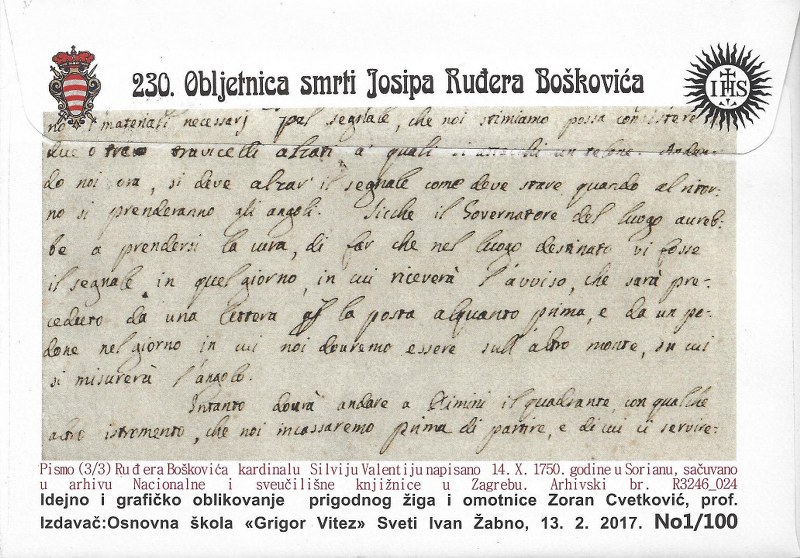 230. Obljetnica smrti Josipa Ruđera Boškovića
IHS
no i materiali necessarj pel segnale, che noi stimiamo possa consistere
due o tre travicelli alzati a' quali si attacchi un telone. Andan-
do noi ora, si deve alzar il segnale come deve stare quando al ritor-
no si prenderanno gli angoli. Sicche il Governatore del luogo aureb-
be a prendersi la cura, di far che nel luogo destinato vi fosse
il segnale in quel giorno, in cui riceverà l'avviso, che sarà pre-
ceduto da una lettera la posta alquanto prima, e da un pe-
done nel giorno in cui noi douremo essere sull'altro monte, su cui
si misurerà l'angolo.
Intanto dourà andare a Rimini il quadrante con qualche
altro istromento, che noi incassaremo prima di partire, e di cui ci servire-
Pismo (3/3) Ruđera Boškovića kardinalu Silviju Valentiju napisano 14. X. 1750. godine u Sorianu, sačuvano
u arhivu Nacionalne i sveučilišne knjižnice u Zagrebu. Arhivski br. R3246_024
Idejno i grafičko oblikovanje prigodnog žiga i omotnice Zoran Cvetković, prof.
Izdavač:Osnovna škola «Grigor Vitez» Sveti Ivan Žabno, 13. 2. 2017. No1/100